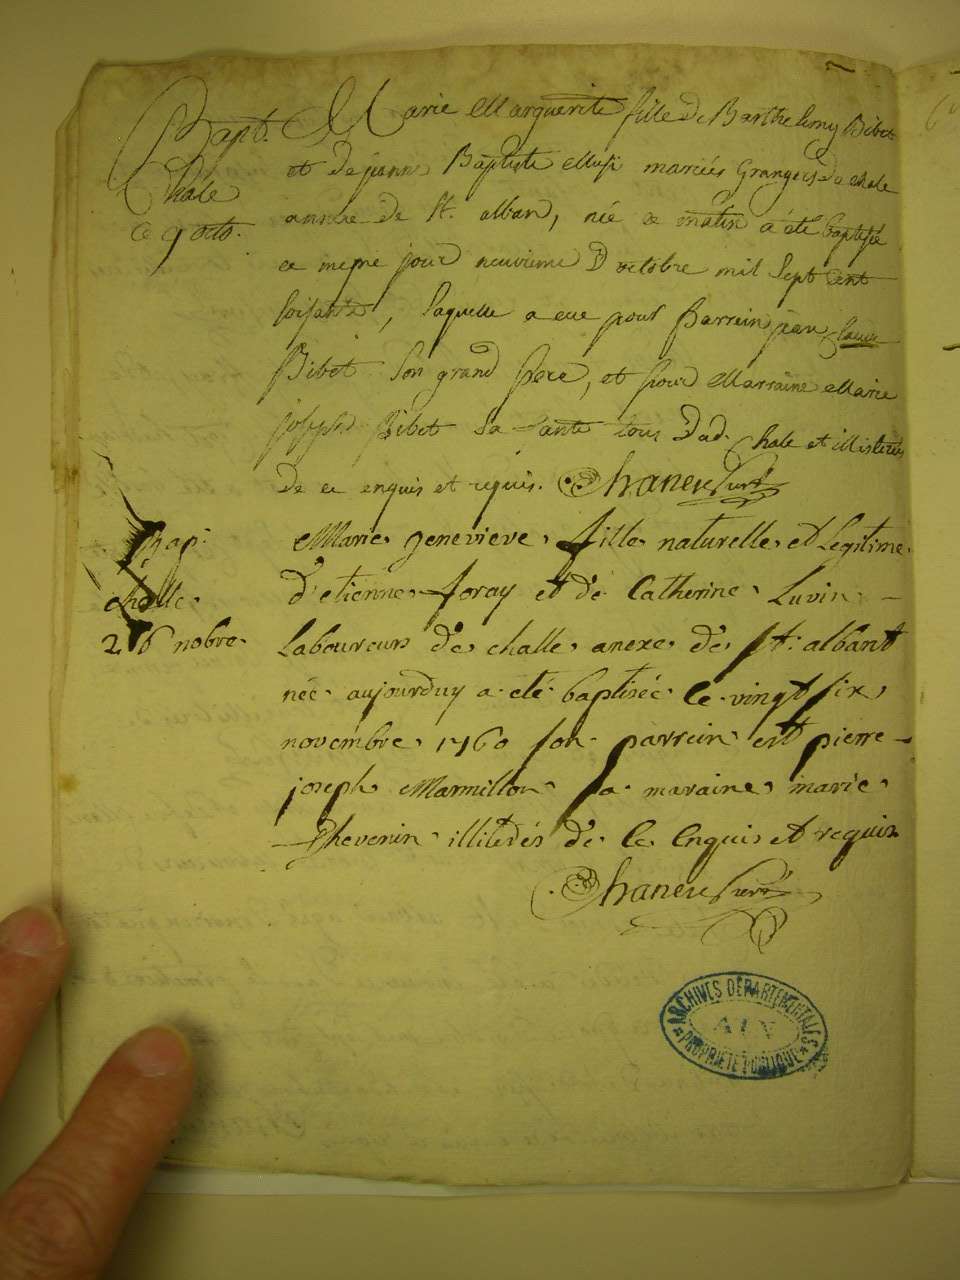 Bapt.
Chale
Ce 9 octo.
Marie Marguerite fille de Barthelemy Bibet
et de jeanne Baptiste mariés Grangers de chale
annexe de St. alban, née ce matin a été baptisée
ce meme jour neuvieme D octobre mil sept cent
soisante, laquelle a eue pour parrein jean
Bibet son grand Pere, et pour Marraine Marie
joseph Bibet Sa tante tous Dud. Chale et illiterés
de ce enquis et requis. Chanel Curé
Bap.
challe.
26 nobre.
Marie genevieve fille naturelle et Legitime
d'etienne foray et de Catherine Luvin
Laboureurs de challe anexe de st. albant
née aujourduy a été baptisée le vingt six
novembre 1760 son parrein est pierre
joseph Marmillon sa maraine marie
Thevenin illiterés de ce enquis et requis
Chanel Curé
ARCHIVES DÉPARTEMENTALES
AIN
PROPRIÉTÉ PUBLIQUE